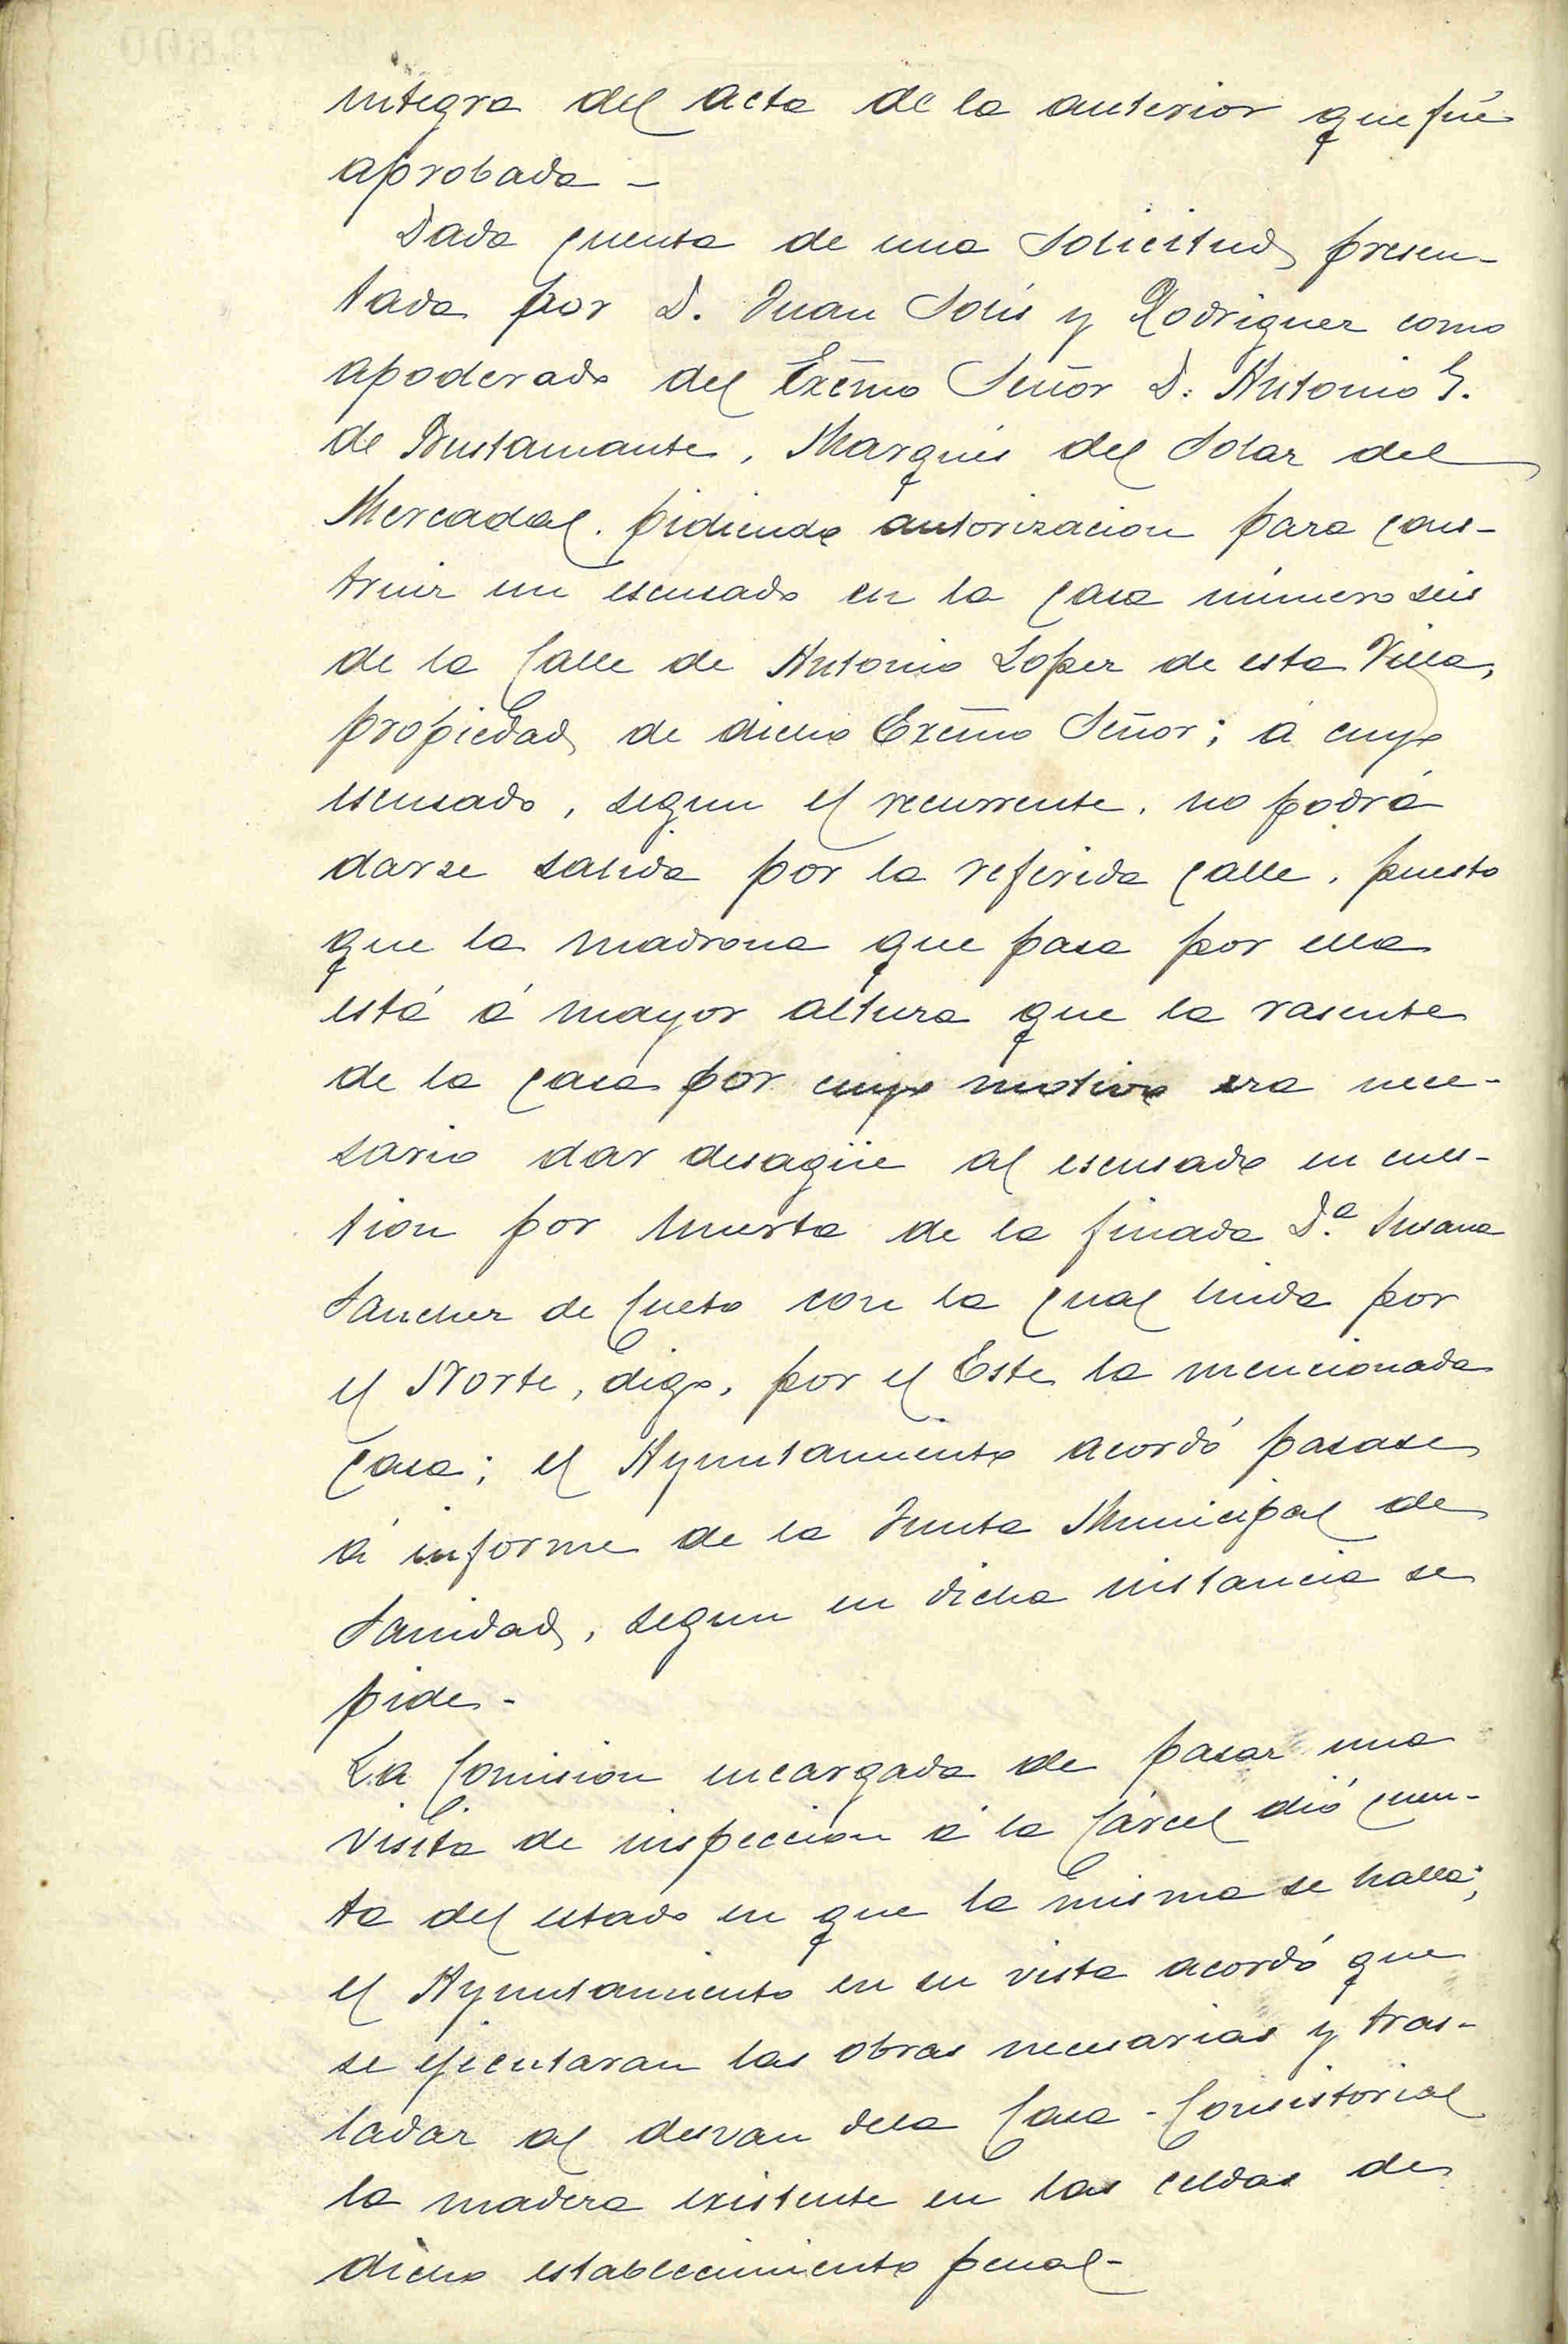 integra del acta de la anterior que fué
aprobada -
Dada cuenta de una Solicitud presen-
tada por D. Juan Solis y Rodriguez como
apoderado del Excmo Señor D. Antonio G.
de Bustamante, Marqués del Solar del
Mercadal. pidiendo autorizacion para cons-
truir un escusado en la casa número seis
de la Calle de Antonio Lopez de esta Villa,
propiedad de dicho Excmo Señor; á cuyo
escusado, segun el recurrente, no podrá
darse salida por la referida calle, puesto
que la madrona que pasa por ella
está á mayor altura que la rasente
de la casa por cuyo motivo era nece-
sario dar desagüe al escusado en cues-
tion por huerta de la finada D.ª Susana
Sanchez de Cueto con la cual linda por
el Norte, digo, por el Este la mencionada
casa; el Ayuntamiento acordó pasase
á informe de la Junta Municipal de
Sanidad, segun en dicha instancia se
pide -
La Comision encargada de pasar una
visita de inspeccion á la Cárcel dió cuen-
ta del estado en que la misma se halla;
el Ayuntamiento en su vista acordó que
se ejecutaran las obras necesarias y tras-
ladar al desvan dela Casa - Consistorial
la madera existente en las celdas de
dicho establecimiento penal -